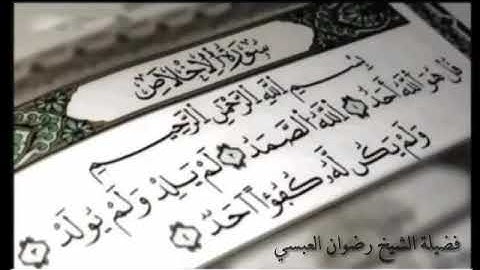 سُورَةُ الْإِخْلَاصِ
بِسْمِ اللَّهِ الرَّحْمَٰنِ الرَّحِيمِ
قُلْ هُوَ اللَّهُ أَحَدٌ ۝١ اللَّهُ الصَّمَدُ ۝٢ لَمْ يَلِدْ وَلَمْ يُولَدْ ۝٣
وَلَمْ يَكُن لَّهُ كُفُوًا أَحَدٌ ۝٤
فضيلة الشيخ رضوان العبسي